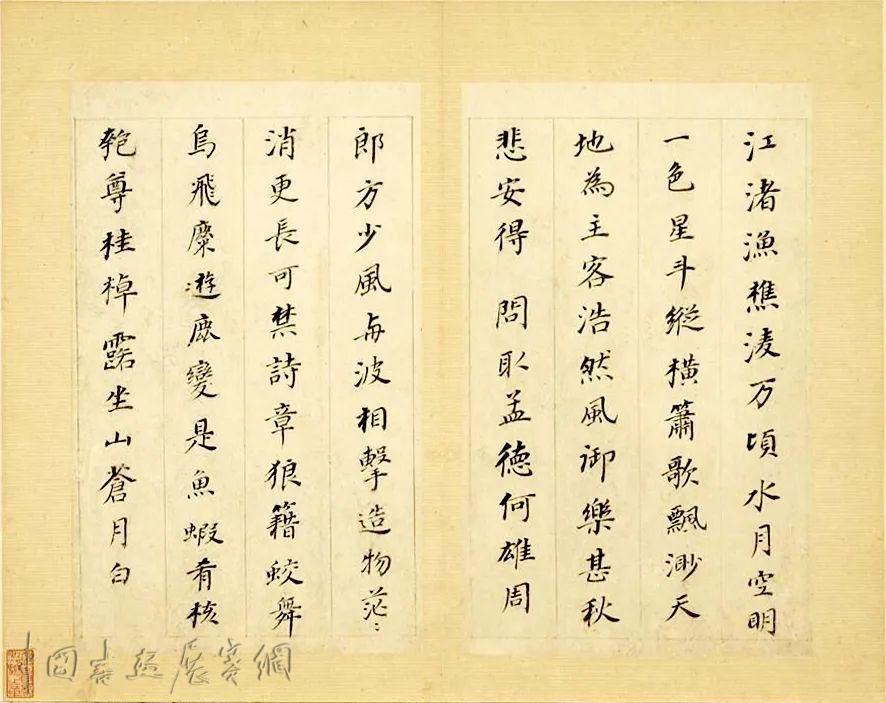 江渚漁樵淩万頃水月空明
一色星斗縱橫簫歌飄渺天
地為主客浩然風御樂甚秋
悲安得 問取孟德何雄周
郎方少風与波相擊造物茫〻
消更長可禁詩章狼籍蛟舞
烏飛麋遊鹿變是魚蝦肴核
匏尊桂棹露坐山蒼月白